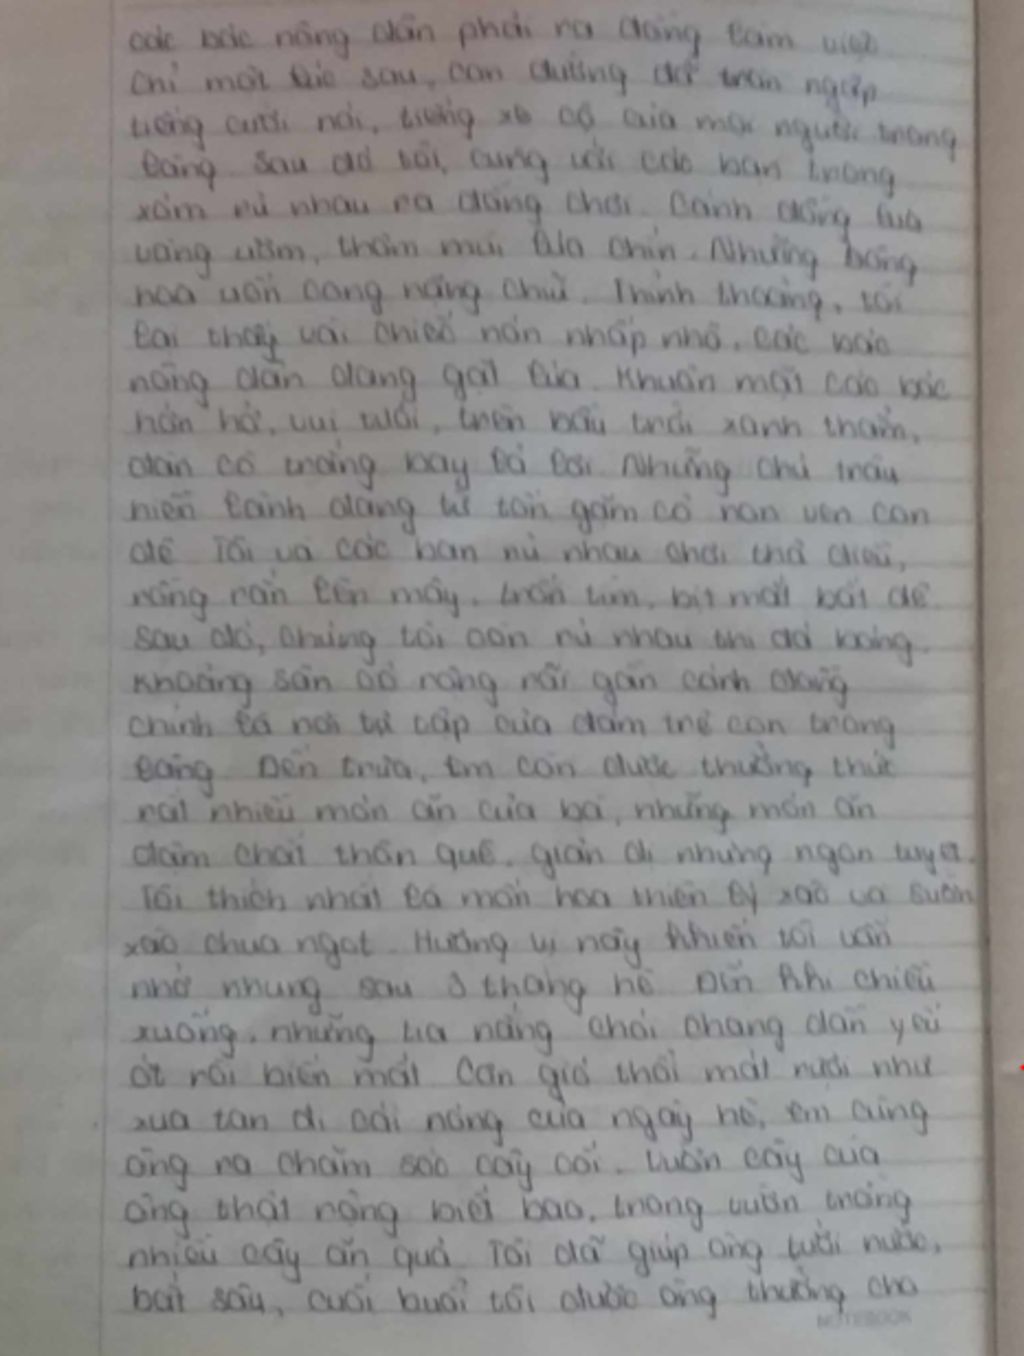 các bác nông dân phải ra đồng làm việc
Chỉ một lúc sau, con đường đã tràn ngập
tiếng cười nói, tiếng xe cộ của mọi người trong
làng. Sau đó tôi, cùng với các bạn trong
xóm rủ nhau ra đồng chơi. Cánh đồng lúa
vàng ươm, thơm mùi lúa chín. Những bông
hoa uốn cong nặng chữu. Thỉnh thoảng, tôi
lại thấy vài chiếc nón nhấp nhô. Các bác
nông dân đang gặt lúa. Khuôn mặt các bác
hớn hở, vui tươi, trên bầu trời xanh thẳm,
đàn cò trắng bay lả lơi. Những chú trâu
hiền lành đang từ tốn gặm cỏ non ven con
đê. Tôi và các bạn rủ nhau chơi thả diều,
rồng rắn lên mây, trốn tìm, bịt mắt bắt dê.
Sau đó, chúng tôi còn rủ nhau thi đá bóng.
Khoảng sân cỏ rộng rãi gần cánh đồng
chính là nơi tụ tập của đám trẻ con trong
làng. Đến trưa, em còn được thưởng thức
rất nhiều món ăn của bà, những món ăn
đậm chất thôn quê, giản dị nhưng ngon tuyệt.
Tôi thích nhất là món hoa thiên lý xào và sườn
xào chua ngọt. Hương vị này khiến tôi vẫn
nhớ nhung sau 3 tháng hè. Đến khi chiều
xuống, những tia nắng chói chang dần yếu
ớt rồi biến mất. Cơn gió thổi mát rượi như
xua tan đi cái nóng của ngày hè, em cùng
ông ra chăm sóc cây cối. Vườn cây của
ông thật rộng biết bao, trong vườn trồng
nhiều cây ăn quả. Tôi đã giúp ông tưới nước,
bắt sâu, cuối buổi tôi được ông thưởng cho
NOTEBOOK